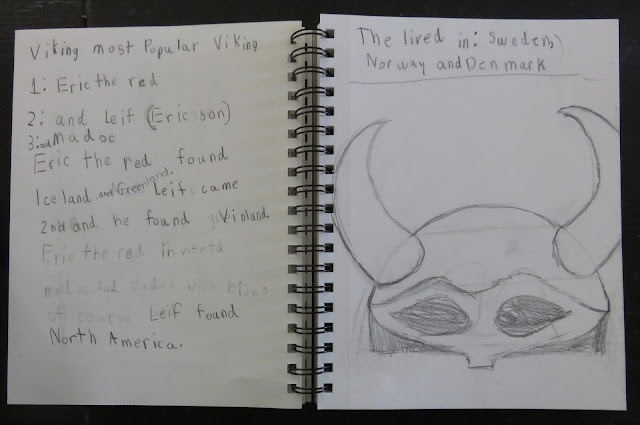 Viking most Popular Viking
1: Eric the red
2: and Leif (Ericsson)
3: and Madoc
Eric the red found
Iceland and Greenland. Leif came
2nd and he found Vinland.
Eric the red
madoc was blown
of course Leif found
North America.
The lived in: Sweden,
Norway and Denmark